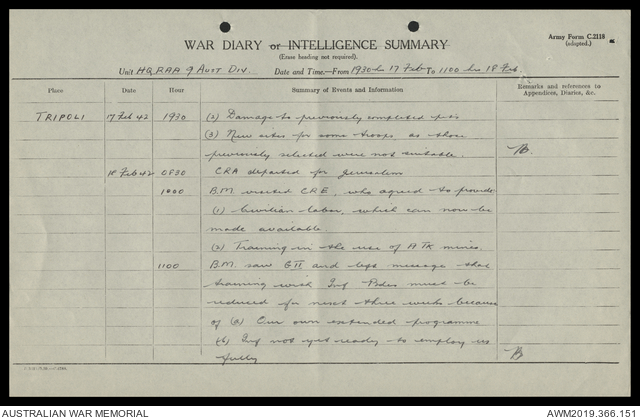 Army Form C.2118
(adapted.)
WAR DIARY or INTELLIGENCE SUMMARY
(Erase heading not required).
Unit HQ RAA 9 AUST DIV. Date and Time—From 1930 hr 17 Feb To 1100 hr 18 Feb.
Place Date Hour Summary of Events and Information Remarks and references to Appendices, Diaries, &c.
TRIPOLI 17 Feb 42 1930 (2) Damage to previously completed pits
(3) New sites for some troops as those
previously selected were not suitable.
18 Feb 42 0830 CRA departed for Jerusalem
1000 B.M. visited CRE, who agreed to provide
(1) Civilian labor, which can now be
made available
(2) Training in the use of ATK mines.
1100 B.M. saw GII and left message that
training with Inf Bdes must be
reduced for next three weeks because
of (a) Our own extended programme
(b) Inf not yet ready to employ us
fully
AUSTRALIAN WAR MEMORIAL AWM2019.366.151